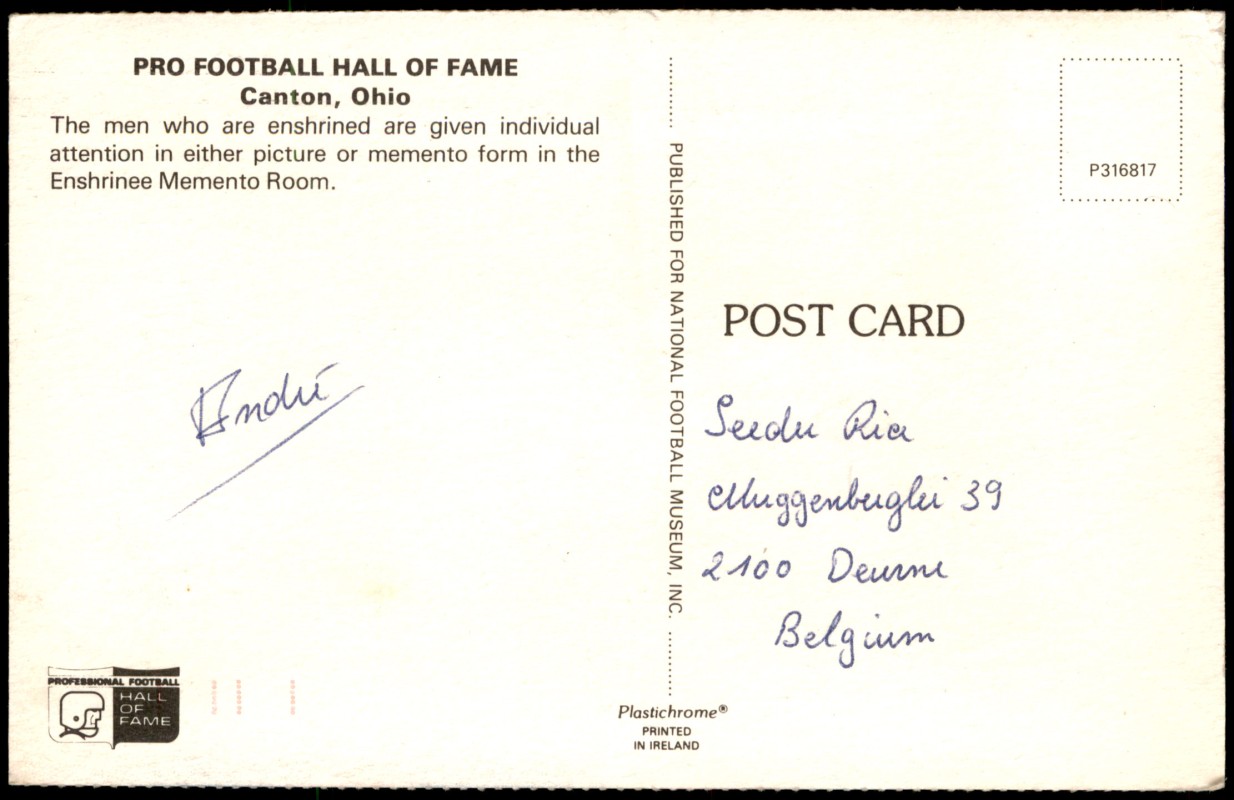 PRO FOOTBALL HALL OF FAME
Canton, Ohio
The men who are enshrined are given individual
attention in either picture or memento form in the
Enshrinee Memento Room.
André
PROFESSIONAL FOOTBALL
HALL
OF
FAME
PUBLISHED FOR NATIONAL FOOTBALL MUSEUM, INC.
Plastichrome®
PRINTED
IN IRELAND
P316817
POST CARD
Ria
Muggenberglei 39
2100 Deurne
Belgium